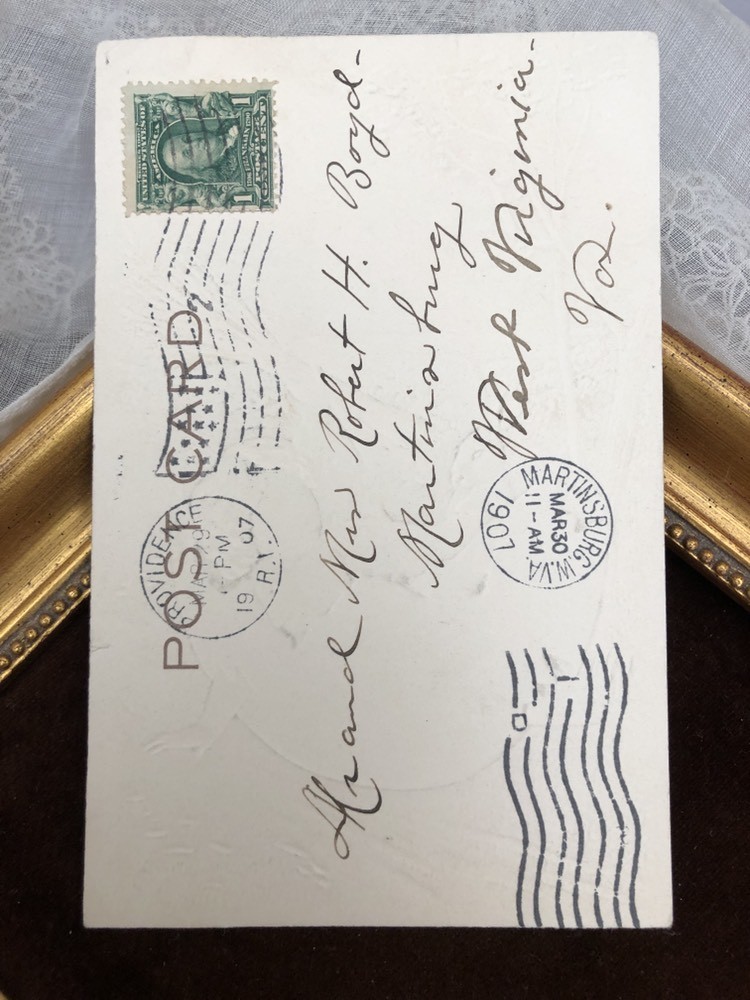 POST CARD
PROVIDENCE
MAR 29
PM
1907
R.I.
UNITED STATES OF
AMERICA
1 1
Mr and Mrs Robert H. Boyd-
Martinsburg
West Virginia-
Va.
MARTINSBURG, W.VA.
MAR 30
11-AM
1907
D